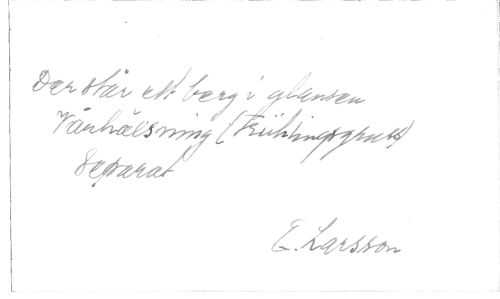 Der står ett berg i glansen
Vårhälsning (Frühlingsgruss)
Separat
E. Larsson